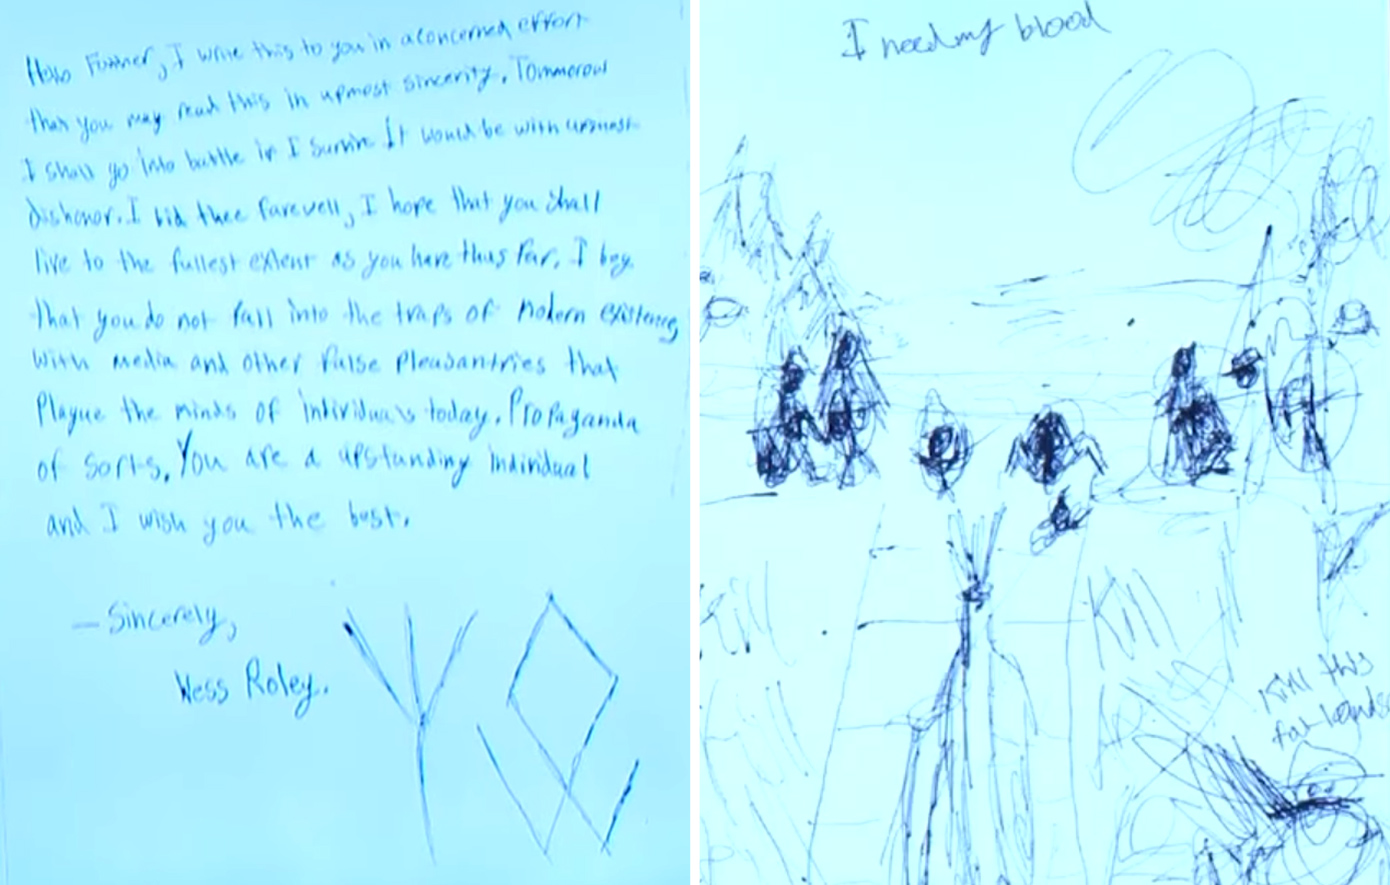 Hello Further, I write this to you in a concerned effort
that you may read this in upmost sincerity. Tommorow
I shall go into battle if I survive It would be with upmost
dishonor. I bid thee farewell, I hope that you shall
live to the fullest extent as you have thus far. I beg
that you do not fall into the traps of modern existence
with media and other false pleasantries that
Plague the minds of individuals today. Propaganda
of sorts. You are a upstanding individual
and I wish you the best.
— Sincerely,
Wess Roley.
I need my blood
Kill
Kill
Kill this